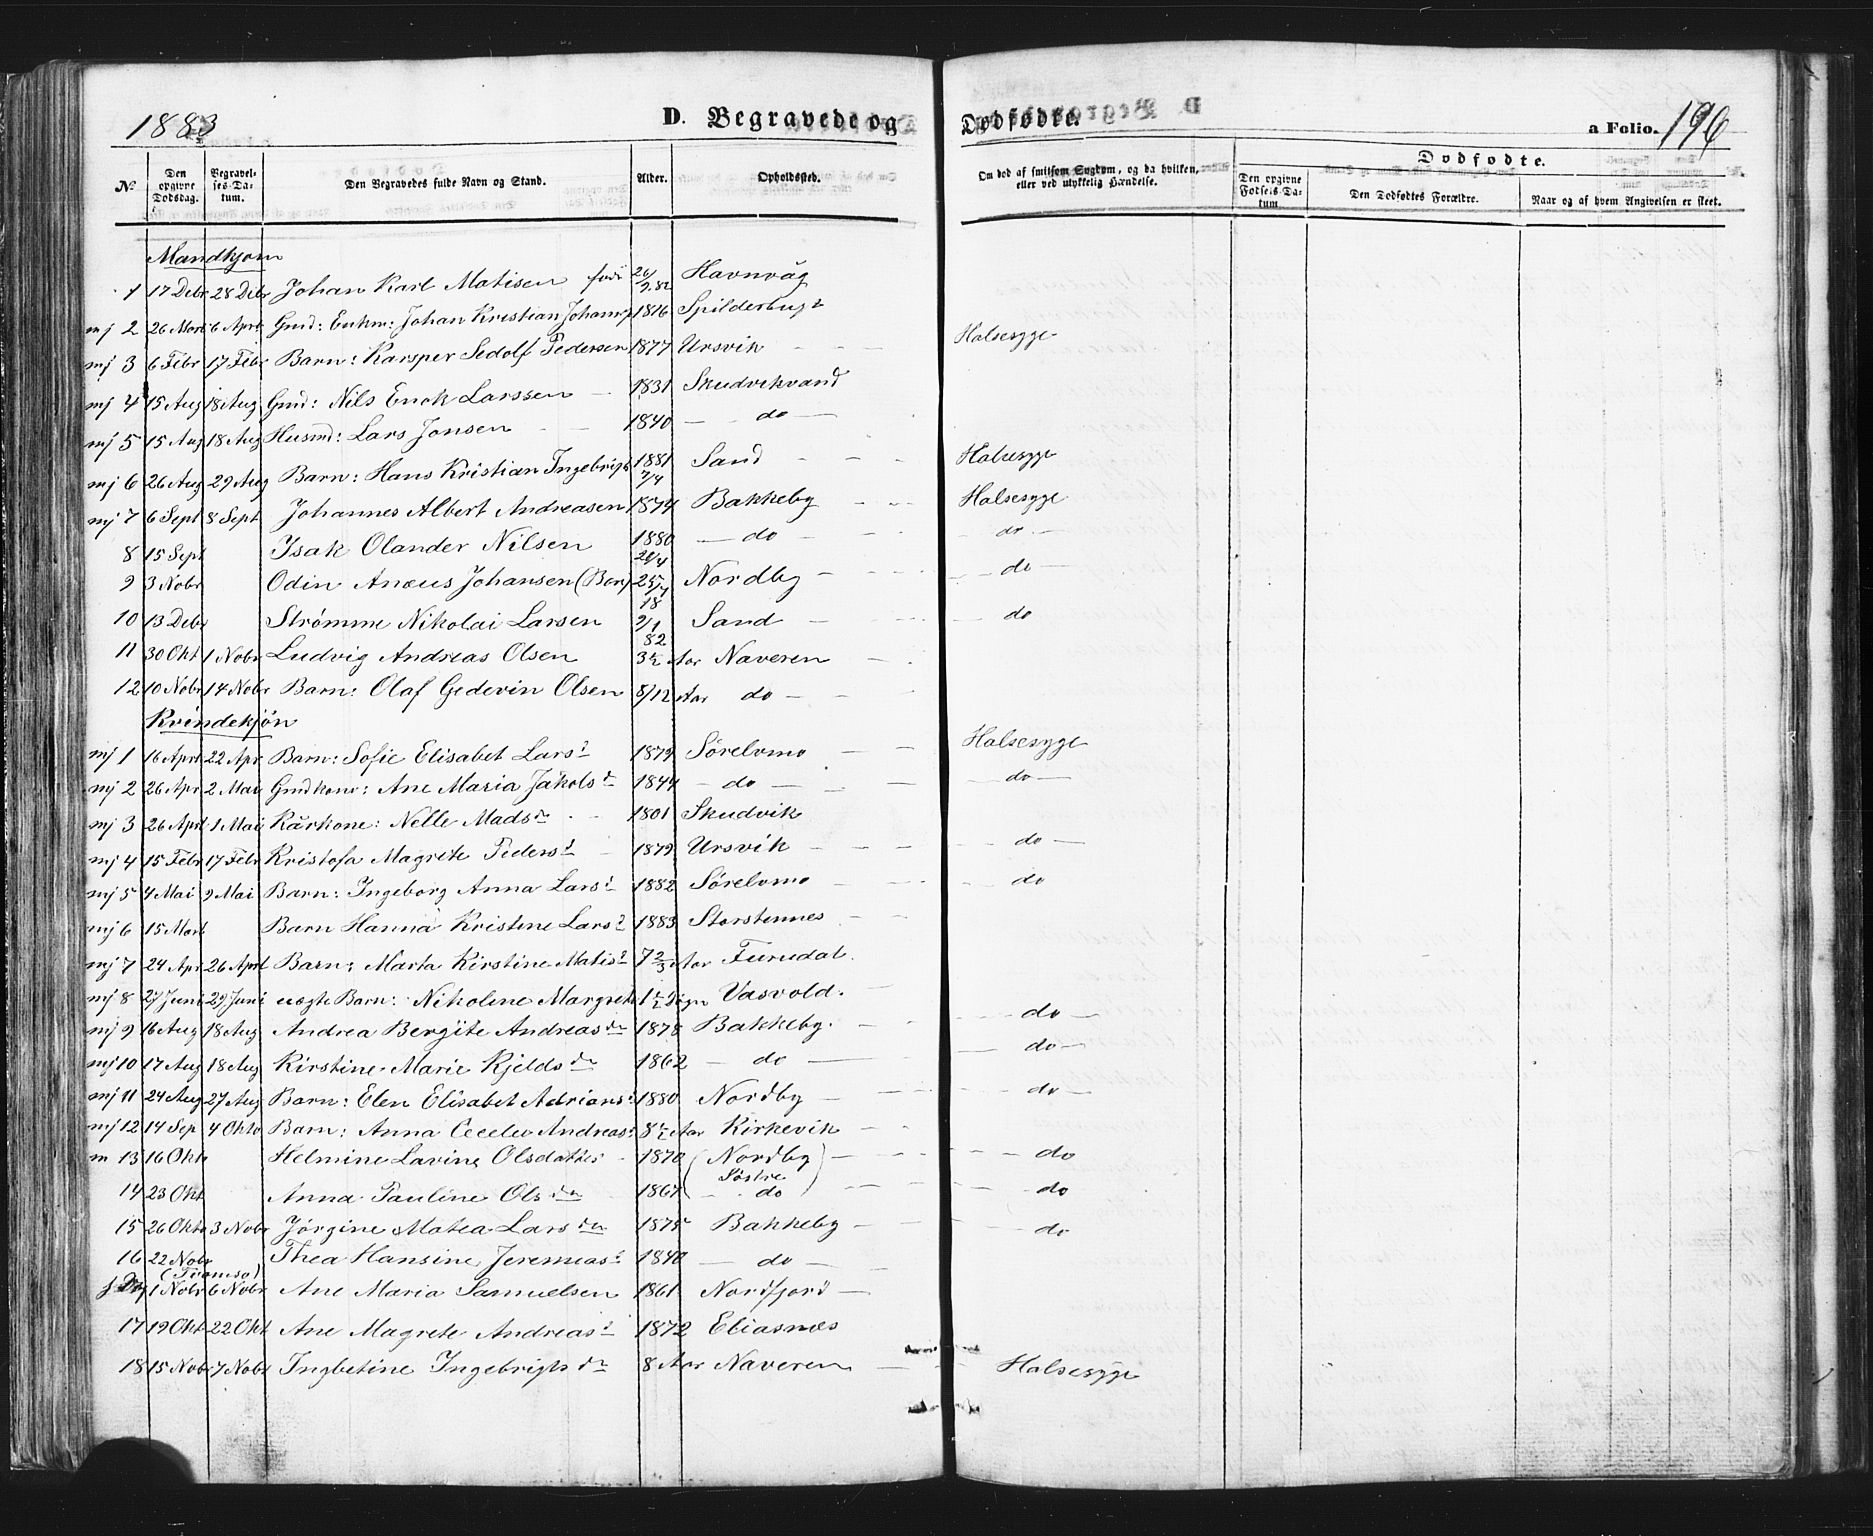 1883
D. Begravede og Dødfødte.
a Folio. 196
No.
Den opgivne Dødsdag.
Begravelses-Datum.
Den Begravedes fulde Navn og Stand.
Alder.
Opholdssted.
Om død af smitsom Sygdom, og da hvilken, eller ved ulykkelig Hændelse.
Dødfødte.
Den opgivne Fødsels-Datum
Den Dødfødtes Forældre.
Naar og af hvem Angivelsen er skeet.
Mandkjøn
1 17 Debr 28 Debr Johan Karl Matisen født 26/9.82 Havnvåg
mj 2 26 Mars 6 Apr. Gmd: Enkm: Johan Kristian Johans 1816 Spilderbugt
mj 3 6 Febr 17 Febr Barn: Karsper Sedolf Pedersen 1877 Ursvik Halsesyge
mj 4 15 Aug 18 Aug Gmd: Nils Enok Larssen 1831 Skudvikvand
mj 5 15 Aug 18 Aug Husmd: Lars Jonsen 1840 do
mj 6 26 Aug 29 Aug Barn: Hans Kristian Ingebrigts 1881 7/4 Sand Halsesyge
mj 7 6 Sept 8 Sept Johannes Albert Andreasen 1874 Bakkeby Halsesyge
8 15 Sept Isak Olander Nilsen 1880 20/4 do do
9 3 Nobr Odin Aneus Johansen (Barn) 25/7 18 Nordby do
10 13 Debr Strømme Nikolai Larsen 9/1 82 Sand do
11 30 Okt 1 Nobr Ludvig Andreas Olsen 3½ Aar Naveren
12 10 Nobr 14 Nobr Barn: Olaf Gedevin Olsen 8/12 Aar do
Kvindekjøn
mj 1 16 Aprl 22 Apr Barn: Sofie Elisabet Larsd 1879 Sørelvmo Halsesyge
mj 2 26 Apr 2 Mai Gmdkone: Ane Maria Jakobsdr 1844 do do
mj 3 26 Apl 1 Mai Kårkone: Nelle Madsdr 1801 Skudvik
mj 4 15 Febr 17 Febr Kristofa Magrete Pedersd 1879 Ursvik do
mj 5 4 Mai 9 Mai Barn: Ingeborg Anna Larsd 1882 Sørelvmo do
mj 6 15 Mart Barn Hanna Kristine Larsd 1883 Storstennes
mj 7 24 Apr 26 Aprl Barn: Marta Kirstine Matisd 7 2/3 Aar Furudal.
mj 8 27 Juni 29 Juni uægte Barn: Nikoline Margrete 1½ Døgn Vasvold.
mj 9 16 Aug 18 Aug Andrea Bergite Andreasdr 1878 Bakkeby. do
mj 10 17 Aug 18 Aug Kirstine Marie Kjeldsdr 1862 do do
mj 11 24 Aug 27 Aug Barn: Elen Elisabet Adriansd 1880 Nordby do
mj 12 14 Sep 4 Okto Barn: Anna Andreasd 8½ Aar Kirkevik
m 13 16 Okt Helmine Lavine Olsdatter 1870 (Nordby) do
Søstre
14 23 Okt Anna Pauline Olsdr 1867 do do
15 26 Okt 3 Nobr Jørgine Matea Larsdr 1875 Bakkeby do
16 22 Nobr Thea Hansine Jeremeasd 1840 do
(Tromsø)
1 Nobr 6 Nobr Ane Maria Samuelsen 1861 Nordfjord
17 19 Okt 22 Okt Ane Magrete Andreasd 1872 Eliasnes
18 15 Nobr 7 Nobr Ingbetine Ingebrigtsdr 8 Aar Naveren Halsesyge